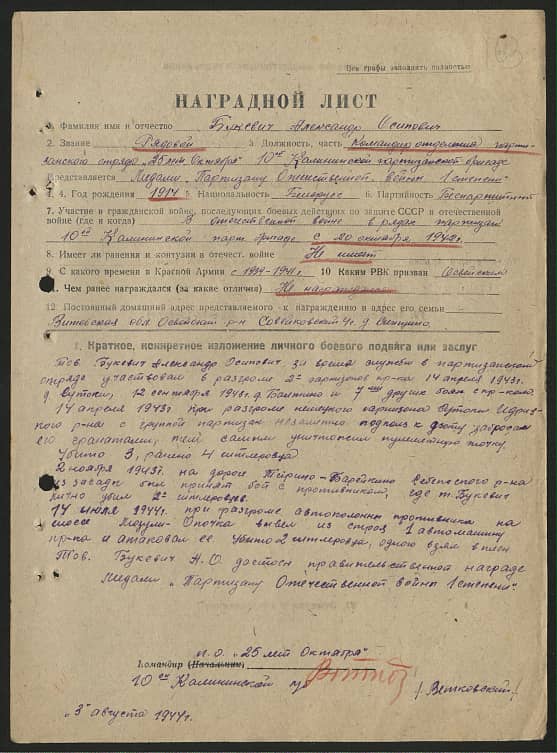 Все графы заполнять полностью
НАГРАДНОЙ ЛИСТ
1. Фамилия имя и отчество Букевич Александр Осипович
2. Звание Рядовой 3 Должность, часть Командир отделения парти-
занского отряда „25 лет Октября" 10ой Калининской партизанской бригады
Представляется Медали „Партизану Отечественной Войны 1 степени"
4. Год рождения 1914 5. Национальность Белорус 6. Партийность Беспартийный
7. Участие в гражданской войне, последующих боевых действиях по защите СССР и отечественной
войне (где и когда) В отечественной войне в рядах партизан
10ой Калининской парт. бригады с 20 октября 1942г.
8. Имеет ли ранения и контузии в отечест. войне Не имеет
9. С какого времени в Красной Армии с 1939-1941г. 10 Каким РВК призван Освейским
11. Чем ранее награждался (за какие отличия) Не награждался
12. Постоянный домашний адрес представляемого к награждению и адрес его семьи
Витебская обл. Освейский р-н д.
I. Краткое, конкретное изложение личного боевого подвига или заслуг
Тов. Букевич Александр Осипович, за время службы в партизанском
отряде участвовал в разгроме 2х гарнизонов пр-ка 14 апреля 1943г.
д. Сутоки, 12 сентября 1943г. д. и 7ми других боях с пр-ком.
14 апреля 1943г. при разгроме немецкого гарнизона Сутоки Идриц-
кого р-на с группой партизан незаметно подполз к дзоту забросал
его гранатами, тем самым уничтожил пулеметную точку
Убито 3, ранено 4 гитлеровца
2 ноября 1943г. на дороге Себежского р-на
из засады был принят бой с противником, где т. Букевич
лично убил 2х гитлеровцев.
14 июля 1944г. при разгроме автоколонны противника на
шоссе -Опочка вывел из строя 1 автомашину
пр-ка и атаковал ее. Убито 2 гитлеровца, одного взял в плен
Тов. Букевич А.О достоин правительственной награде
Медали „Партизану Отечественной войны 1 степени"
п.о. „25 лет Октября"
Командир (Начальник)
10ой Калининской /Ветковский/
„3" августа 1944г.